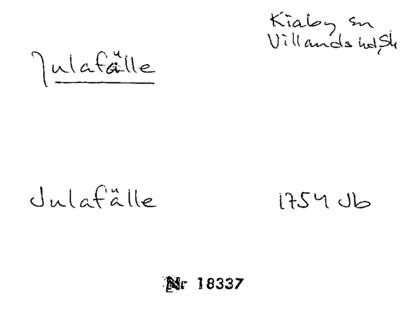 Kiaby sn
Villands hd, Sk
Julafälle
Julafälle 1754 Jb
Nr 18337